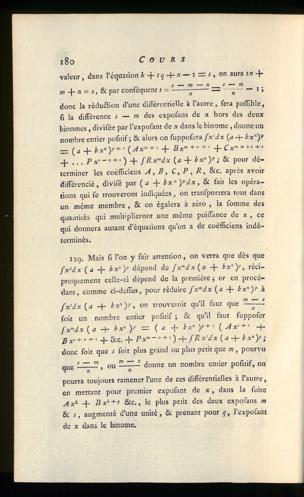 180 COURS
valeur, dans l'équation k + tq + n − 1 = s, on aura tn +
m + n = s, & par conséquent t = (s − m − n)/n = (s − m)/n − 1 ;
donc la réduction d'une différentielle à l'autre, sera possible,
si la différence s − m des exposans de x hors des deux
binomes, divisée par l'exposant de x dans le binome, donne un
nombre entier positif ; & alors on supposera ∫xˢdx (a + bxⁿ)ᵖ
= (a + bxⁿ)ᵖ⁺¹ (Axᵐ⁺¹ + Bxᵐ⁺ⁿ⁺¹ + Cxᵐ⁺²ⁿ⁺¹
+ ... Pxˢ⁻ⁿ⁺¹) + ∫Rxᵐdx (a + bxⁿ)ᵖ ; & pour dé-
terminer les coéficiens A, B, C, P, R, &c. après avoir
différencié, divisé par (a + bxⁿ)ᵖdx, & fait les opéra-
tions qui se trouveront indiquées, on transportera tout dans
un même membre, & on égalera à zéro, la somme des
quantités qui multiplieront une même puissance de x, ce
qui donnera autant d'équations qu'on a de coéficiens indé-
terminés.
129. Mais si l'on y fait attention, on verra que dès que
∫xˢdx (a + bxⁿ)ᵖ dépend de ∫xᵐdx (a + bxⁿ)ᵖ, réci-
proquement celle-ci dépend de la premiere ; or en procé-
dant, comme ci-dessus, pour réduire ∫xᵐdx (a + bxⁿ)ᵖ à
∫xˢdx (a + bxⁿ)ᵖ, on trouveroit qu'il faut que (m − s)/n
soit un nombre entier positif ; & qu'il faut supposer
∫xᵐdx (a + bxⁿ)ᵖ = (a + bxⁿ)ᵖ⁺¹ (Axˢ⁺¹ +
Bxˢ⁺ⁿ⁺¹ + &c. + Pxᵐ⁻ⁿ⁺¹) + ∫Rxˢdx (a + bxⁿ)ᵖ ;
donc soit que s soit plus grand ou plus petit que m, pourvu
que (s − m)/n, ou (m − s)/n donne un nombre entier positif, on
pourra toujours ramener l'une de ces différentielles à l'autre,
en mettant pour premier exposant de x, dans la suite
Axᵏ + Bxᵏ⁺q &c., le plus petit des deux exposans m
& s, augmenté d'une unité, & prenant pour q, l'exposant
de x dans le binome.